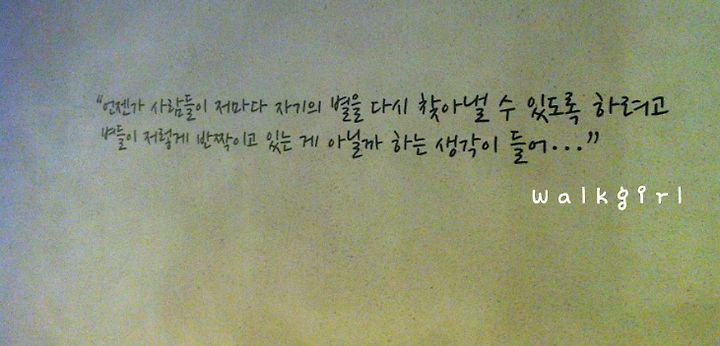 “언젠가 사람들이 저마다 자기의 별을 다시 찾아낼 수 있도록 하려고
별들이 저렇게 반짝이고 있는 게 아닐까 하는 생각이 들어...”
walkgirl